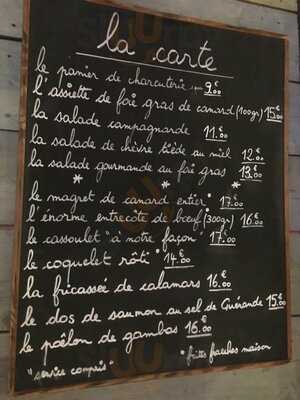 la carte
le panier de charcuterie 9.€
l'assiette de foie gras de canard (100gr) 15.€00
la salade campagnarde 11.€00
la salade de chèvre tiède au miel 12.€00
la salade gourmande au foie gras 13.€00
* * *
le magret de canard entier* 17.€00
l'énorme entrecôte de bœuf (300gr) 16.€00
le cassoulet "à notre façon" 17.€00
le coquelet rôti* 14.€00
la fricassée de calamars 16.€00
le dos de saumon au sel de Guérande 15.€00
le poêlon de gambas 16.€00
"service compris"
*frites fraîches maison